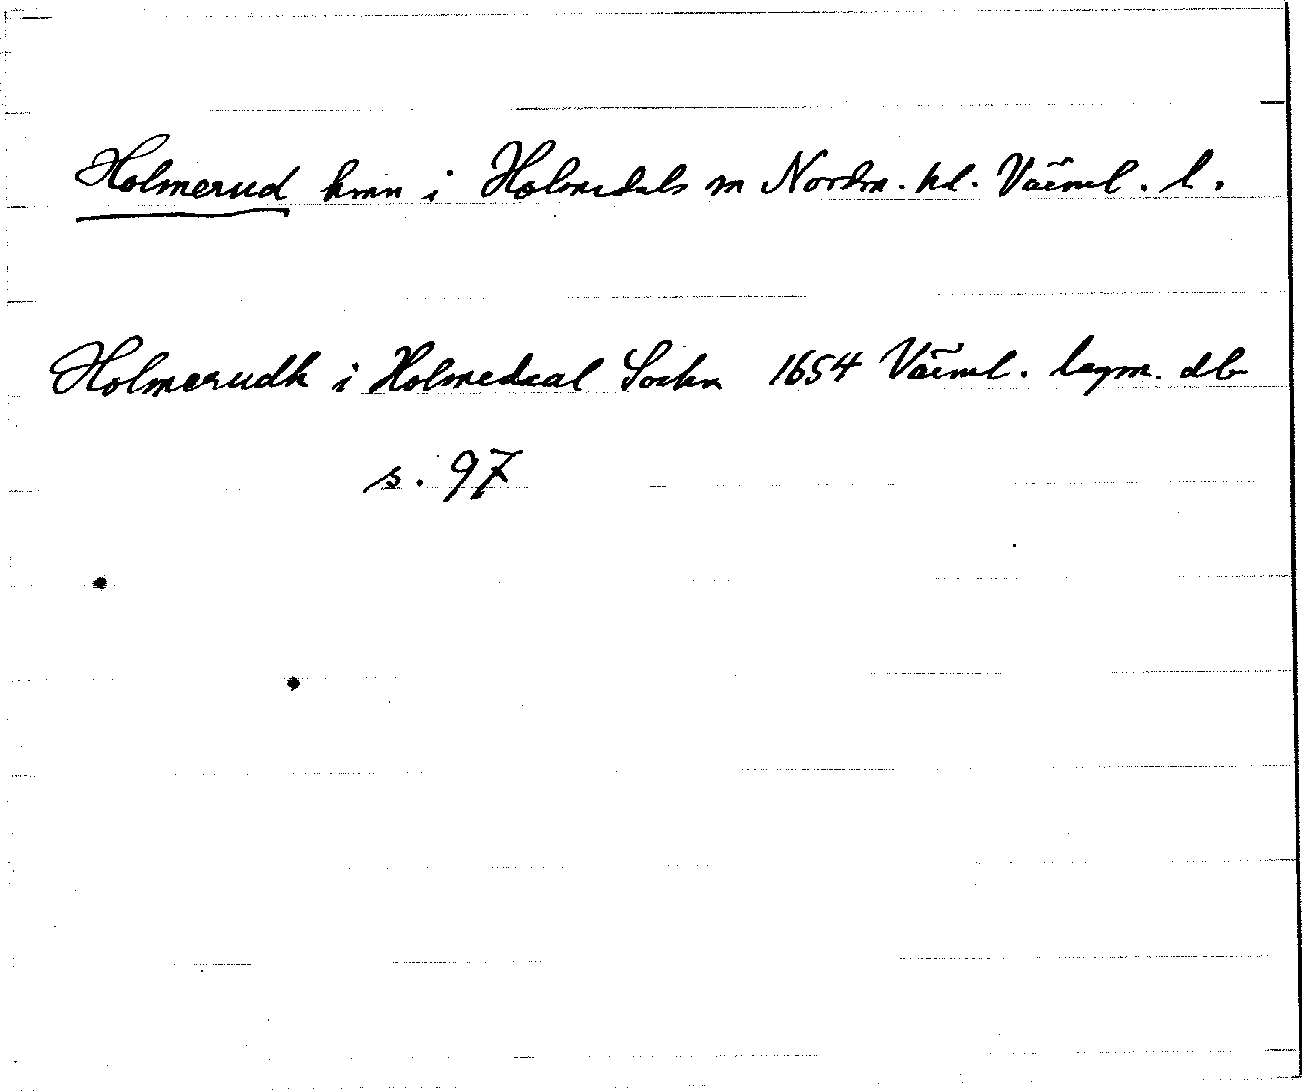 Holmerud hmn i Holmedals sn Nordm. hd. Värml. l.
Holmerudh i Holmedaal Sockn 1654 Värml. lagm. db
s. 97